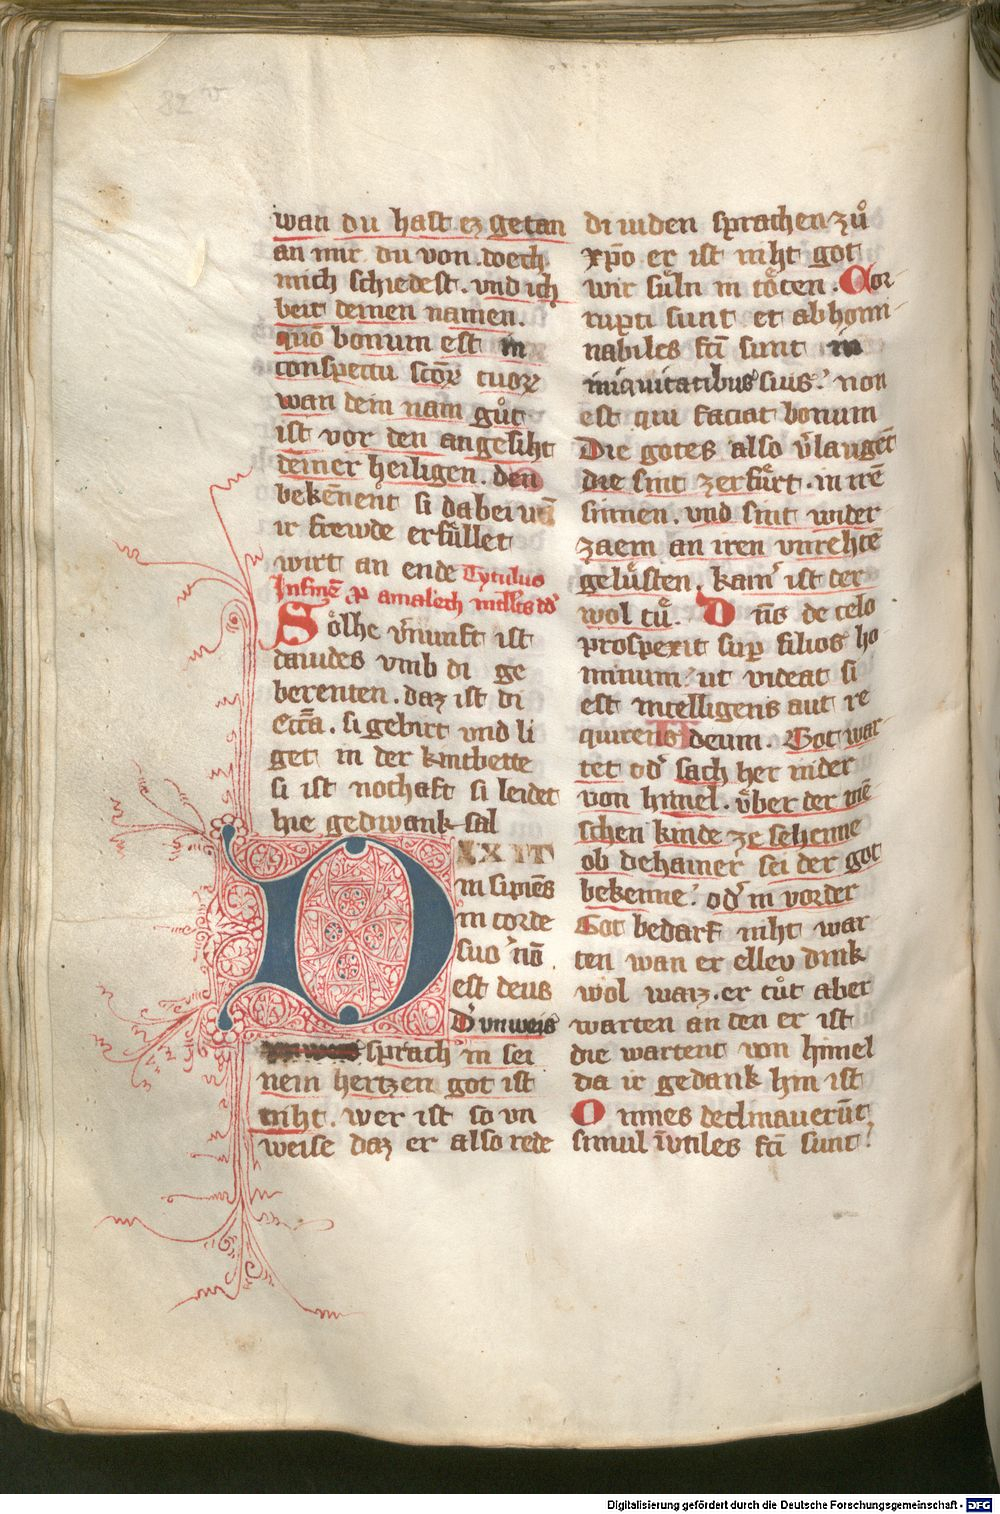 82 v
wan du hast ez getan
an mir. du von. doech
mich schiedest. vnd ich
beit deinen namen.
quō bonum est in
conspectu scōꝝ tuoꝝ
wan dein nam gůt
ist vor den angesiht
deiner heiligen. den
bekēnent si da bei vn̄
ir frewde erfu̍llet
wirt an ende Tytulus
Solhe v̄nunft ist
dauides vmb di ge
berenten. daz ist di
Ecc̄a. si gebirt vnd li
get in der kintbette
si ist nochaft si leidet
hie gedwank sal
DIXIT
insipiēs
in corde
suo nō
est deus
D' vnweis
sprach in sei
nem hertzen got ist
niht. wer ist so vn
weise daz er also rede
di iuden sprachen zů
xp̄o er ist niht got
wir su̍ln in toͤten. Cor
rupti sunt et abhomi
nabiles fc̄i sunt in
iniquitatibus suis. non
est qui faciat bonum
Die gotes also v̄langēt
die sint zerfuͤrt. in irē
sinnen. vnd sint wider
zaem an iren vnrehtē
gelu̍sten. kain' ist der
wol tuͤ. Dn̄s de celo
prospexit sup̱ filios ho
minum. ut videat si
est intelligens aut re
quirens deum. Got war
tet od' sach her nider
von himel. u̍ber der mē
schen kinde ze sehenne
ob diehainer sei der got
bekenne. od' in vorder
Got bedarf niht war
ten wan er ellev dink
wol waiz. er tůt aber
warten an den er ist
die wartent von himel
da ir gedank hin ist
Omnes declinauerūt
simul īvtiles fc̄i sunt.
Digitalisierung gefördert durch die Deutsche Forschungsgemeinschaft - DFG